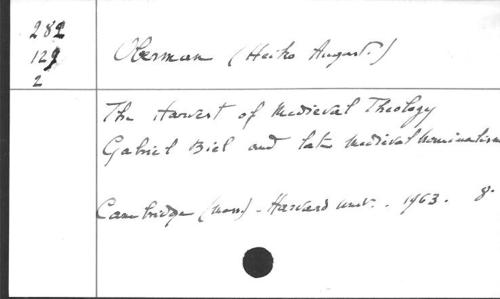 282
127
2
Oberman (Heiko August.)
The Harvest of Medieval Theology
Gabriel Biel and late Medieval Nominalism
Cambridge (Mass) - Harvard Univ. . 1963. 8.